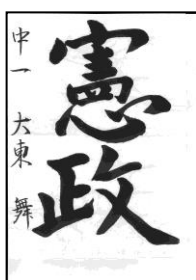 憲政
中一 大東 舞